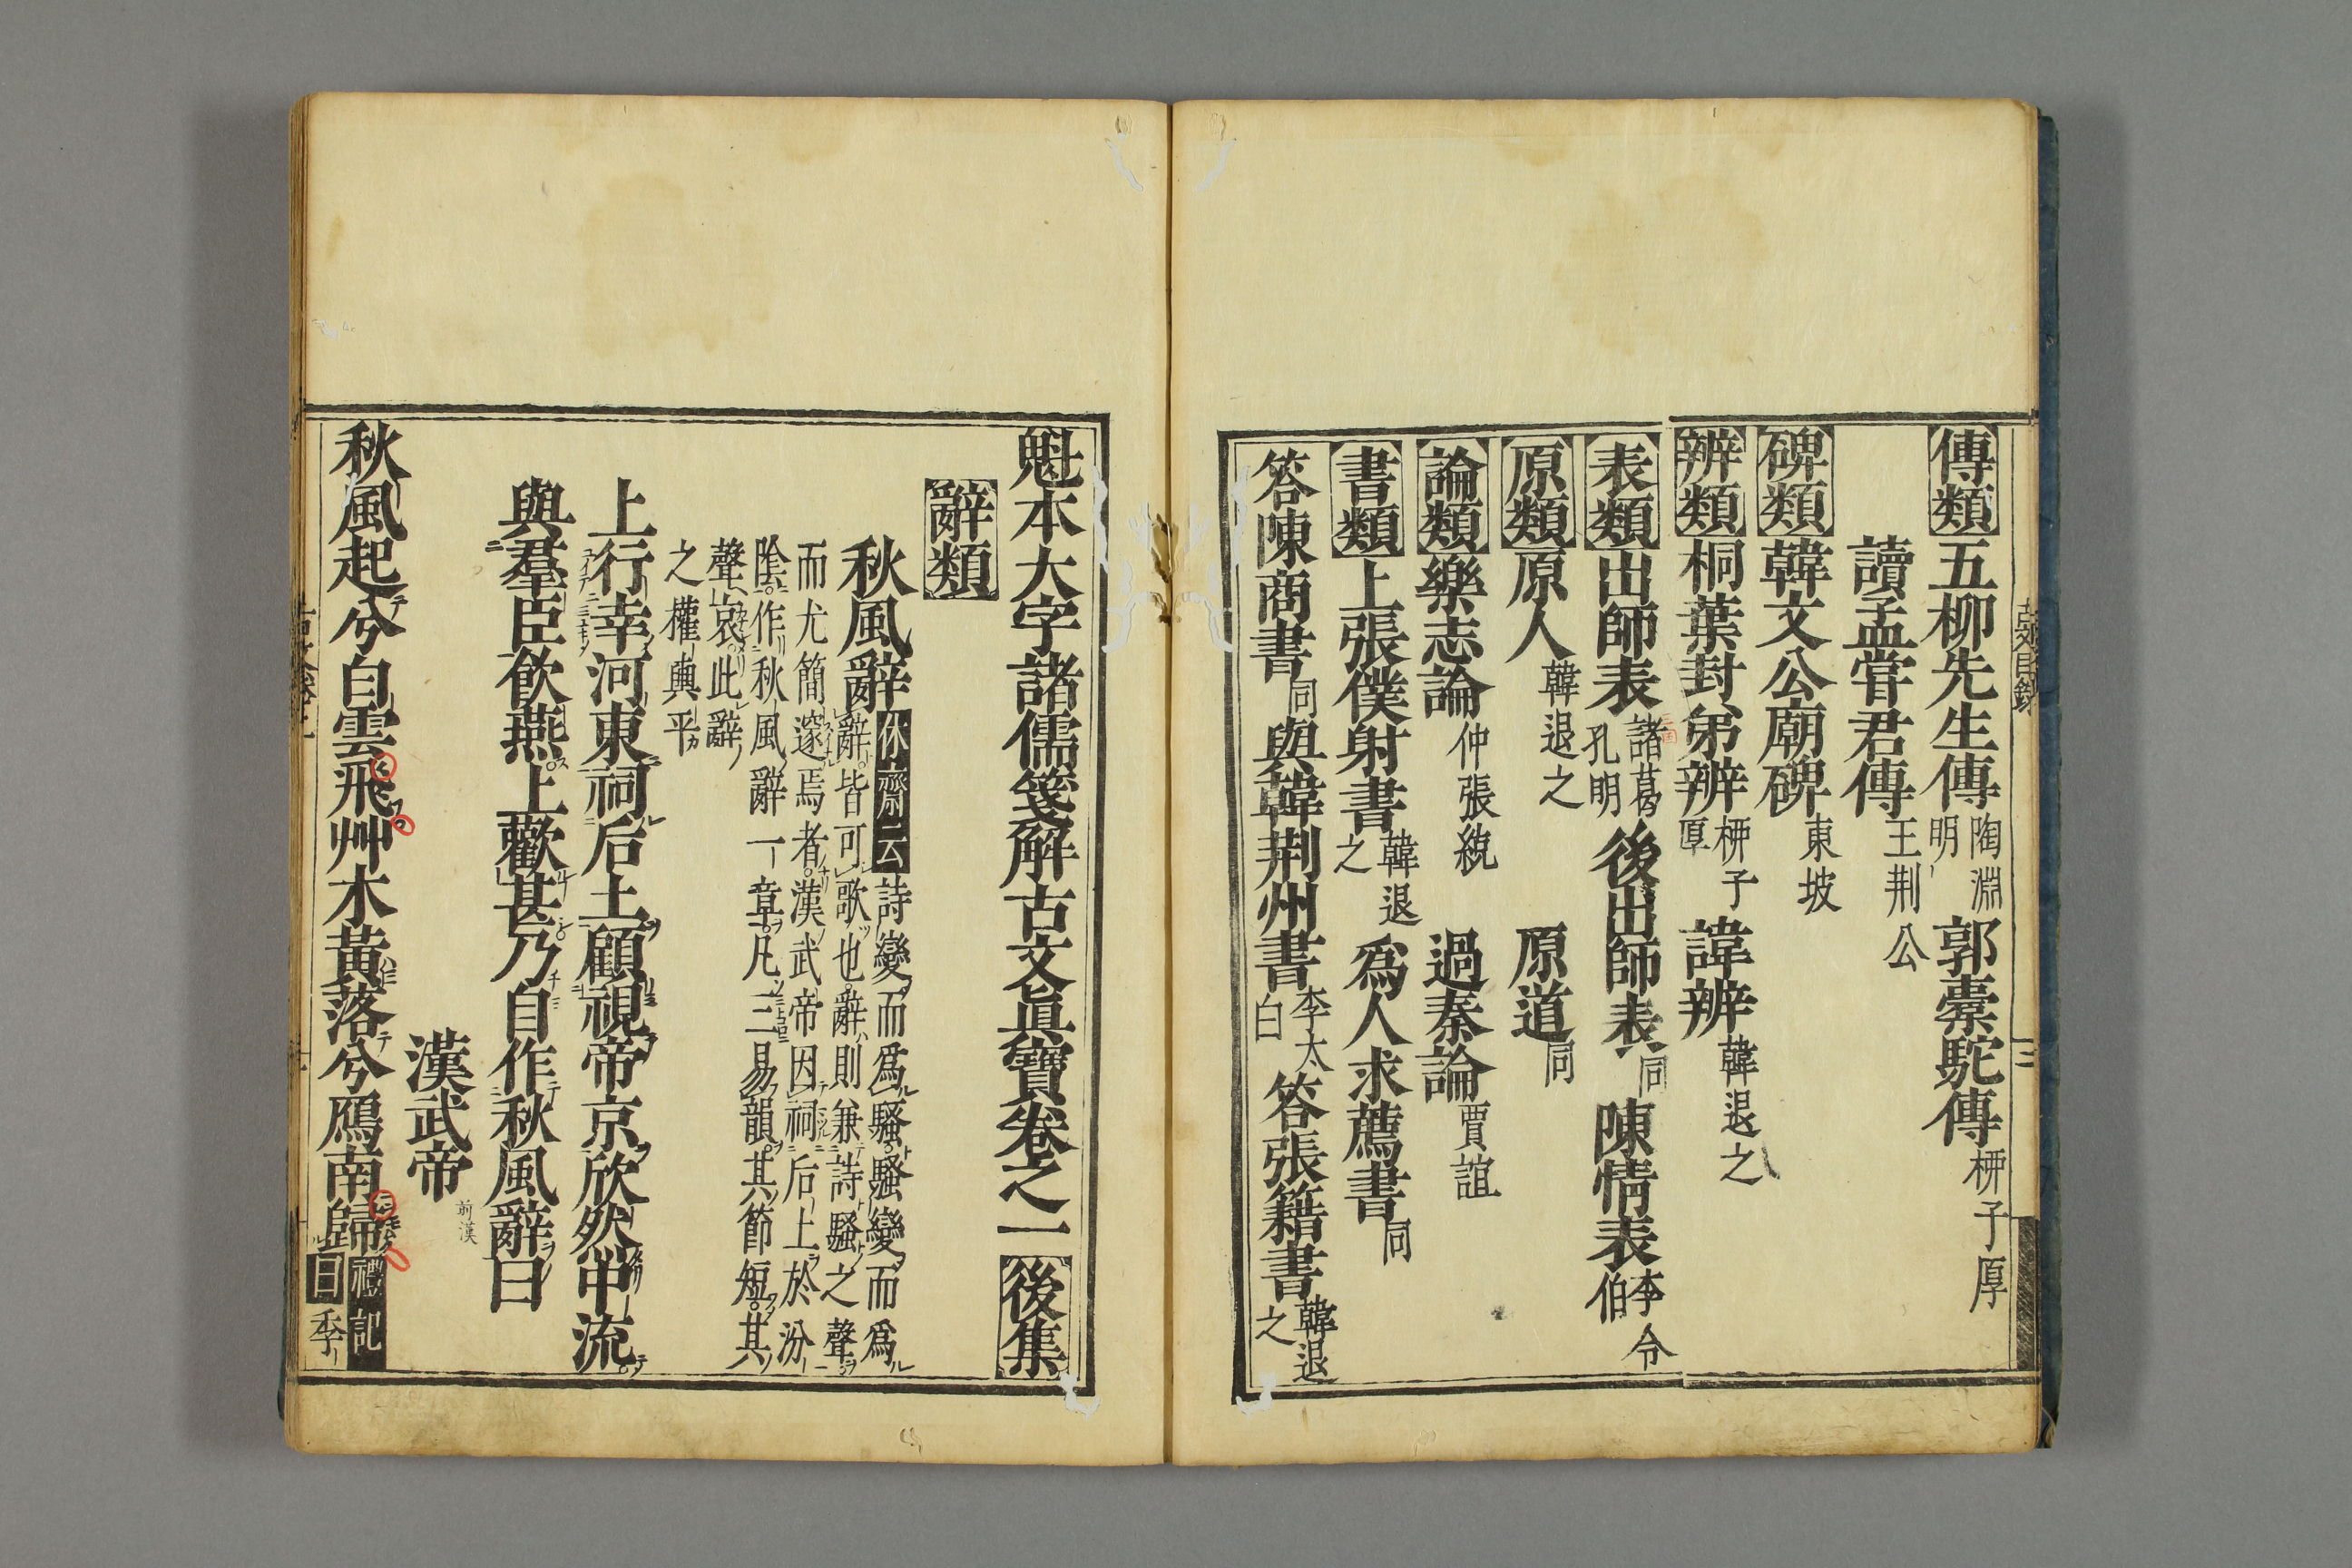 傳類 五柳先生傳 陶淵明 郭橐駝傳 柳子厚
讀孟嘗君傳 王荆公
碑類 韓文公廟碑 東坡
辨類 桐葉封弟辨 柳子厚 諱辨 韓退之
表類 出師表 諸葛孔明 後出師表 同 陳情表 李令伯
原類 原人 韓退之 原道 同
論類 樂志論 仲張統 過秦論 賈誼
書類 上張僕射書 韓退之 爲人求薦書 同
答陳商書 同 與韓荆州書 李太白 答張籍書 韓退之
魁本大字諸儒箋解古文眞寶卷之一 後集
辭類
秋風辭 休齋云 詩變而爲騷騷變而爲
辭皆可歌也辭則兼詩騷之聲
而尤簡邃焉者漢武帝因祠后土於汾
陰作秋風辭一章凡三易韻其節短其
聲哀此辭
之權輿乎
上行幸河東祠后土顧視帝京欣然中流
與羣臣飮燕上歡甚乃自作秋風辭曰
漢武帝 前漢
秋風起兮白雲飛艸木黃落兮鴈南歸 禮記曰季